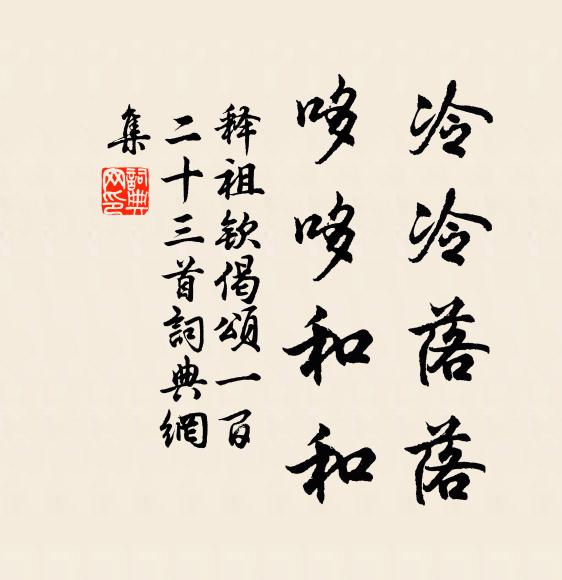 冷冷落落
哆哆和和
释祖钦偈頌一百
二十三首詞典網
集
詞典
网印